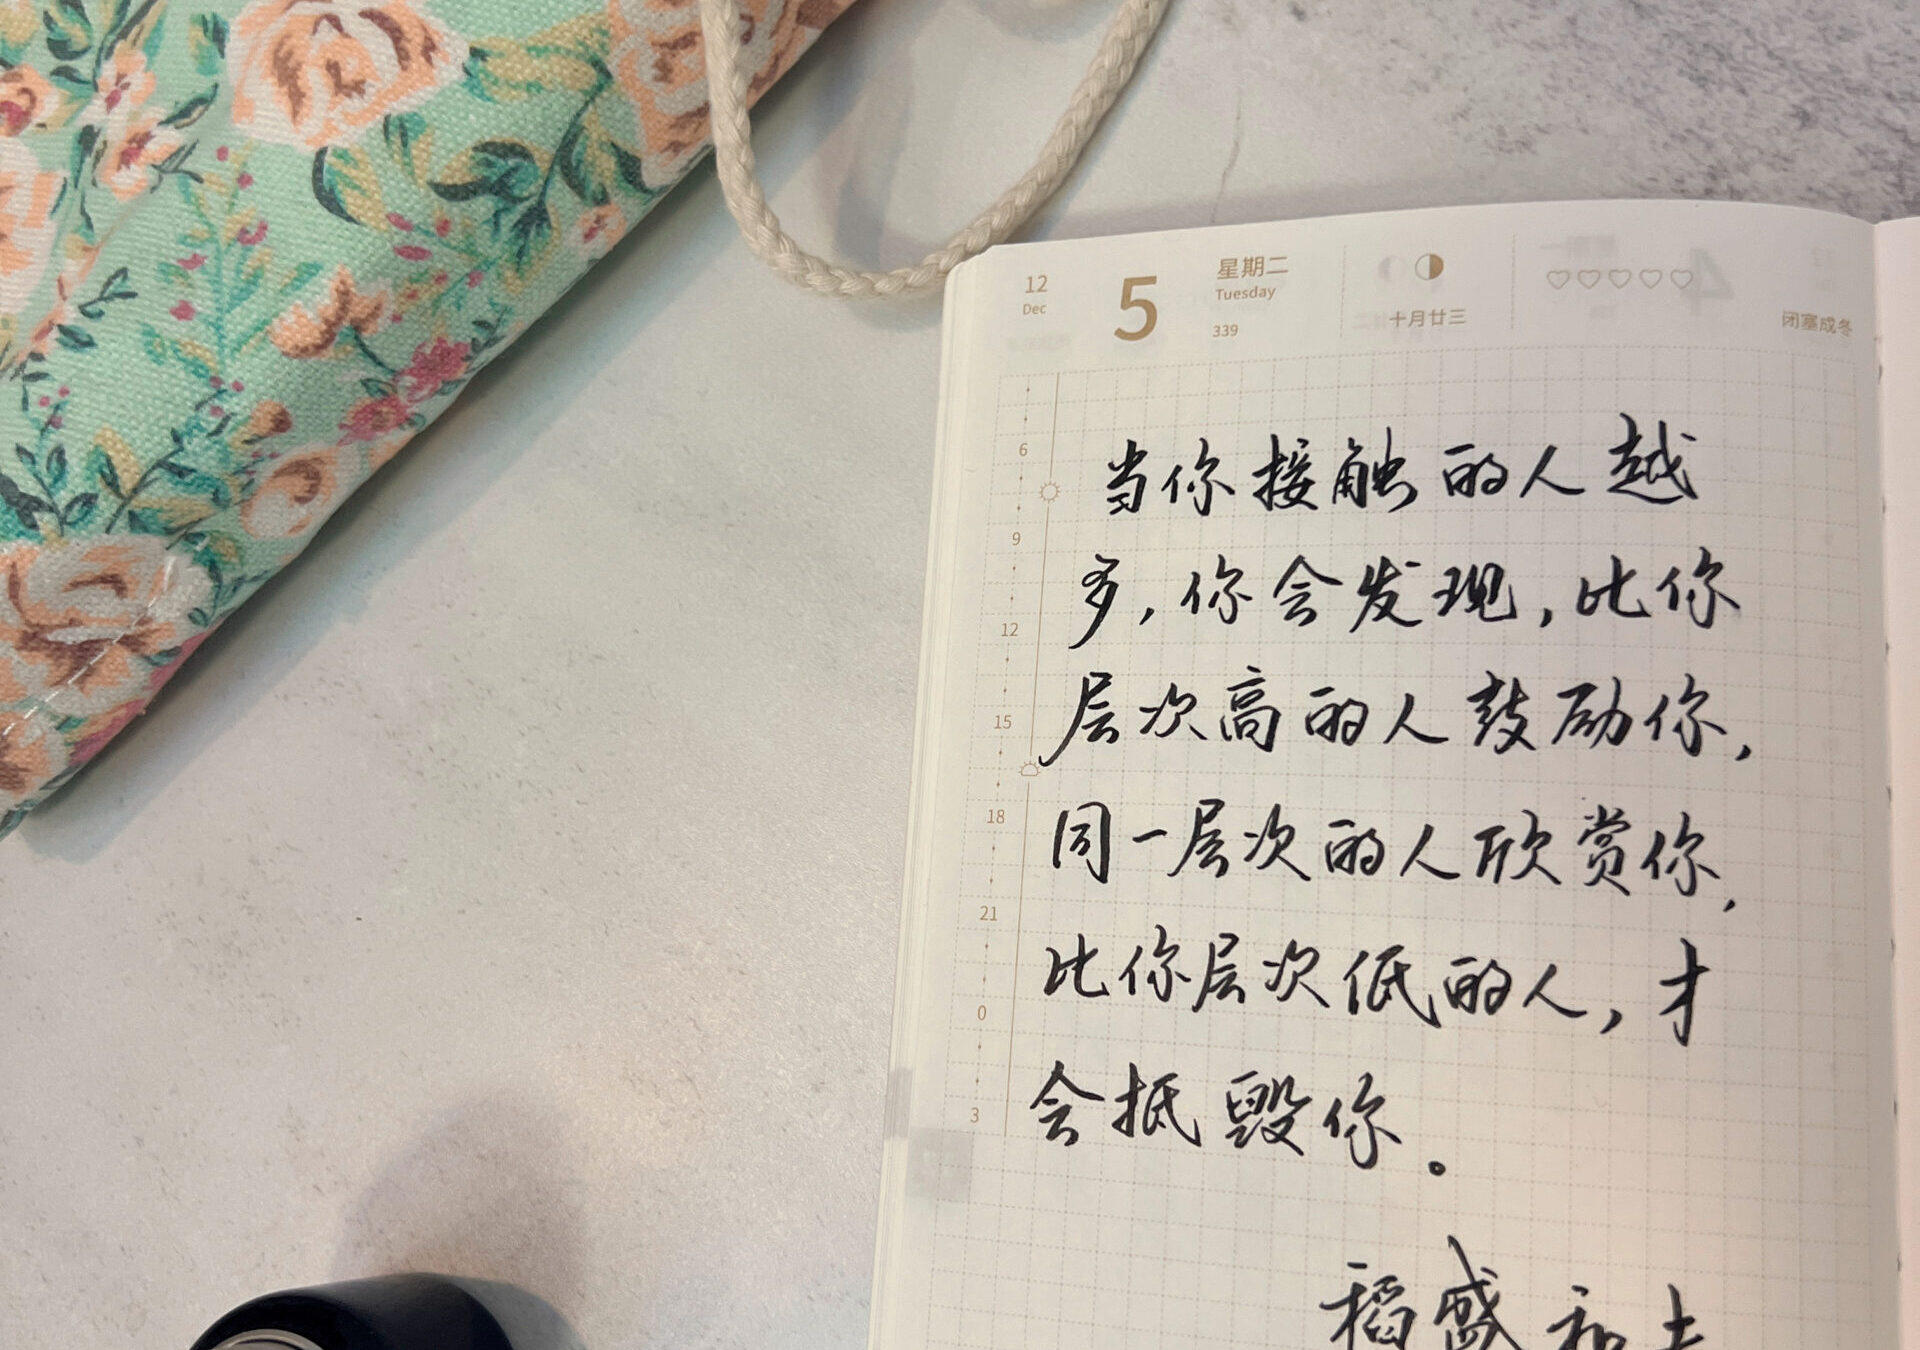 12
Dec
5
星期二
Tuesday
339
十月廿三
闭塞成冬
6
9
12
15
18
21
0
3
当你接触的人越
多，你会发现，比你
层次高的人鼓励你，
同一层次的人欣赏你，
比你层次低的人，才
会抵毁你。
稻盛和夫